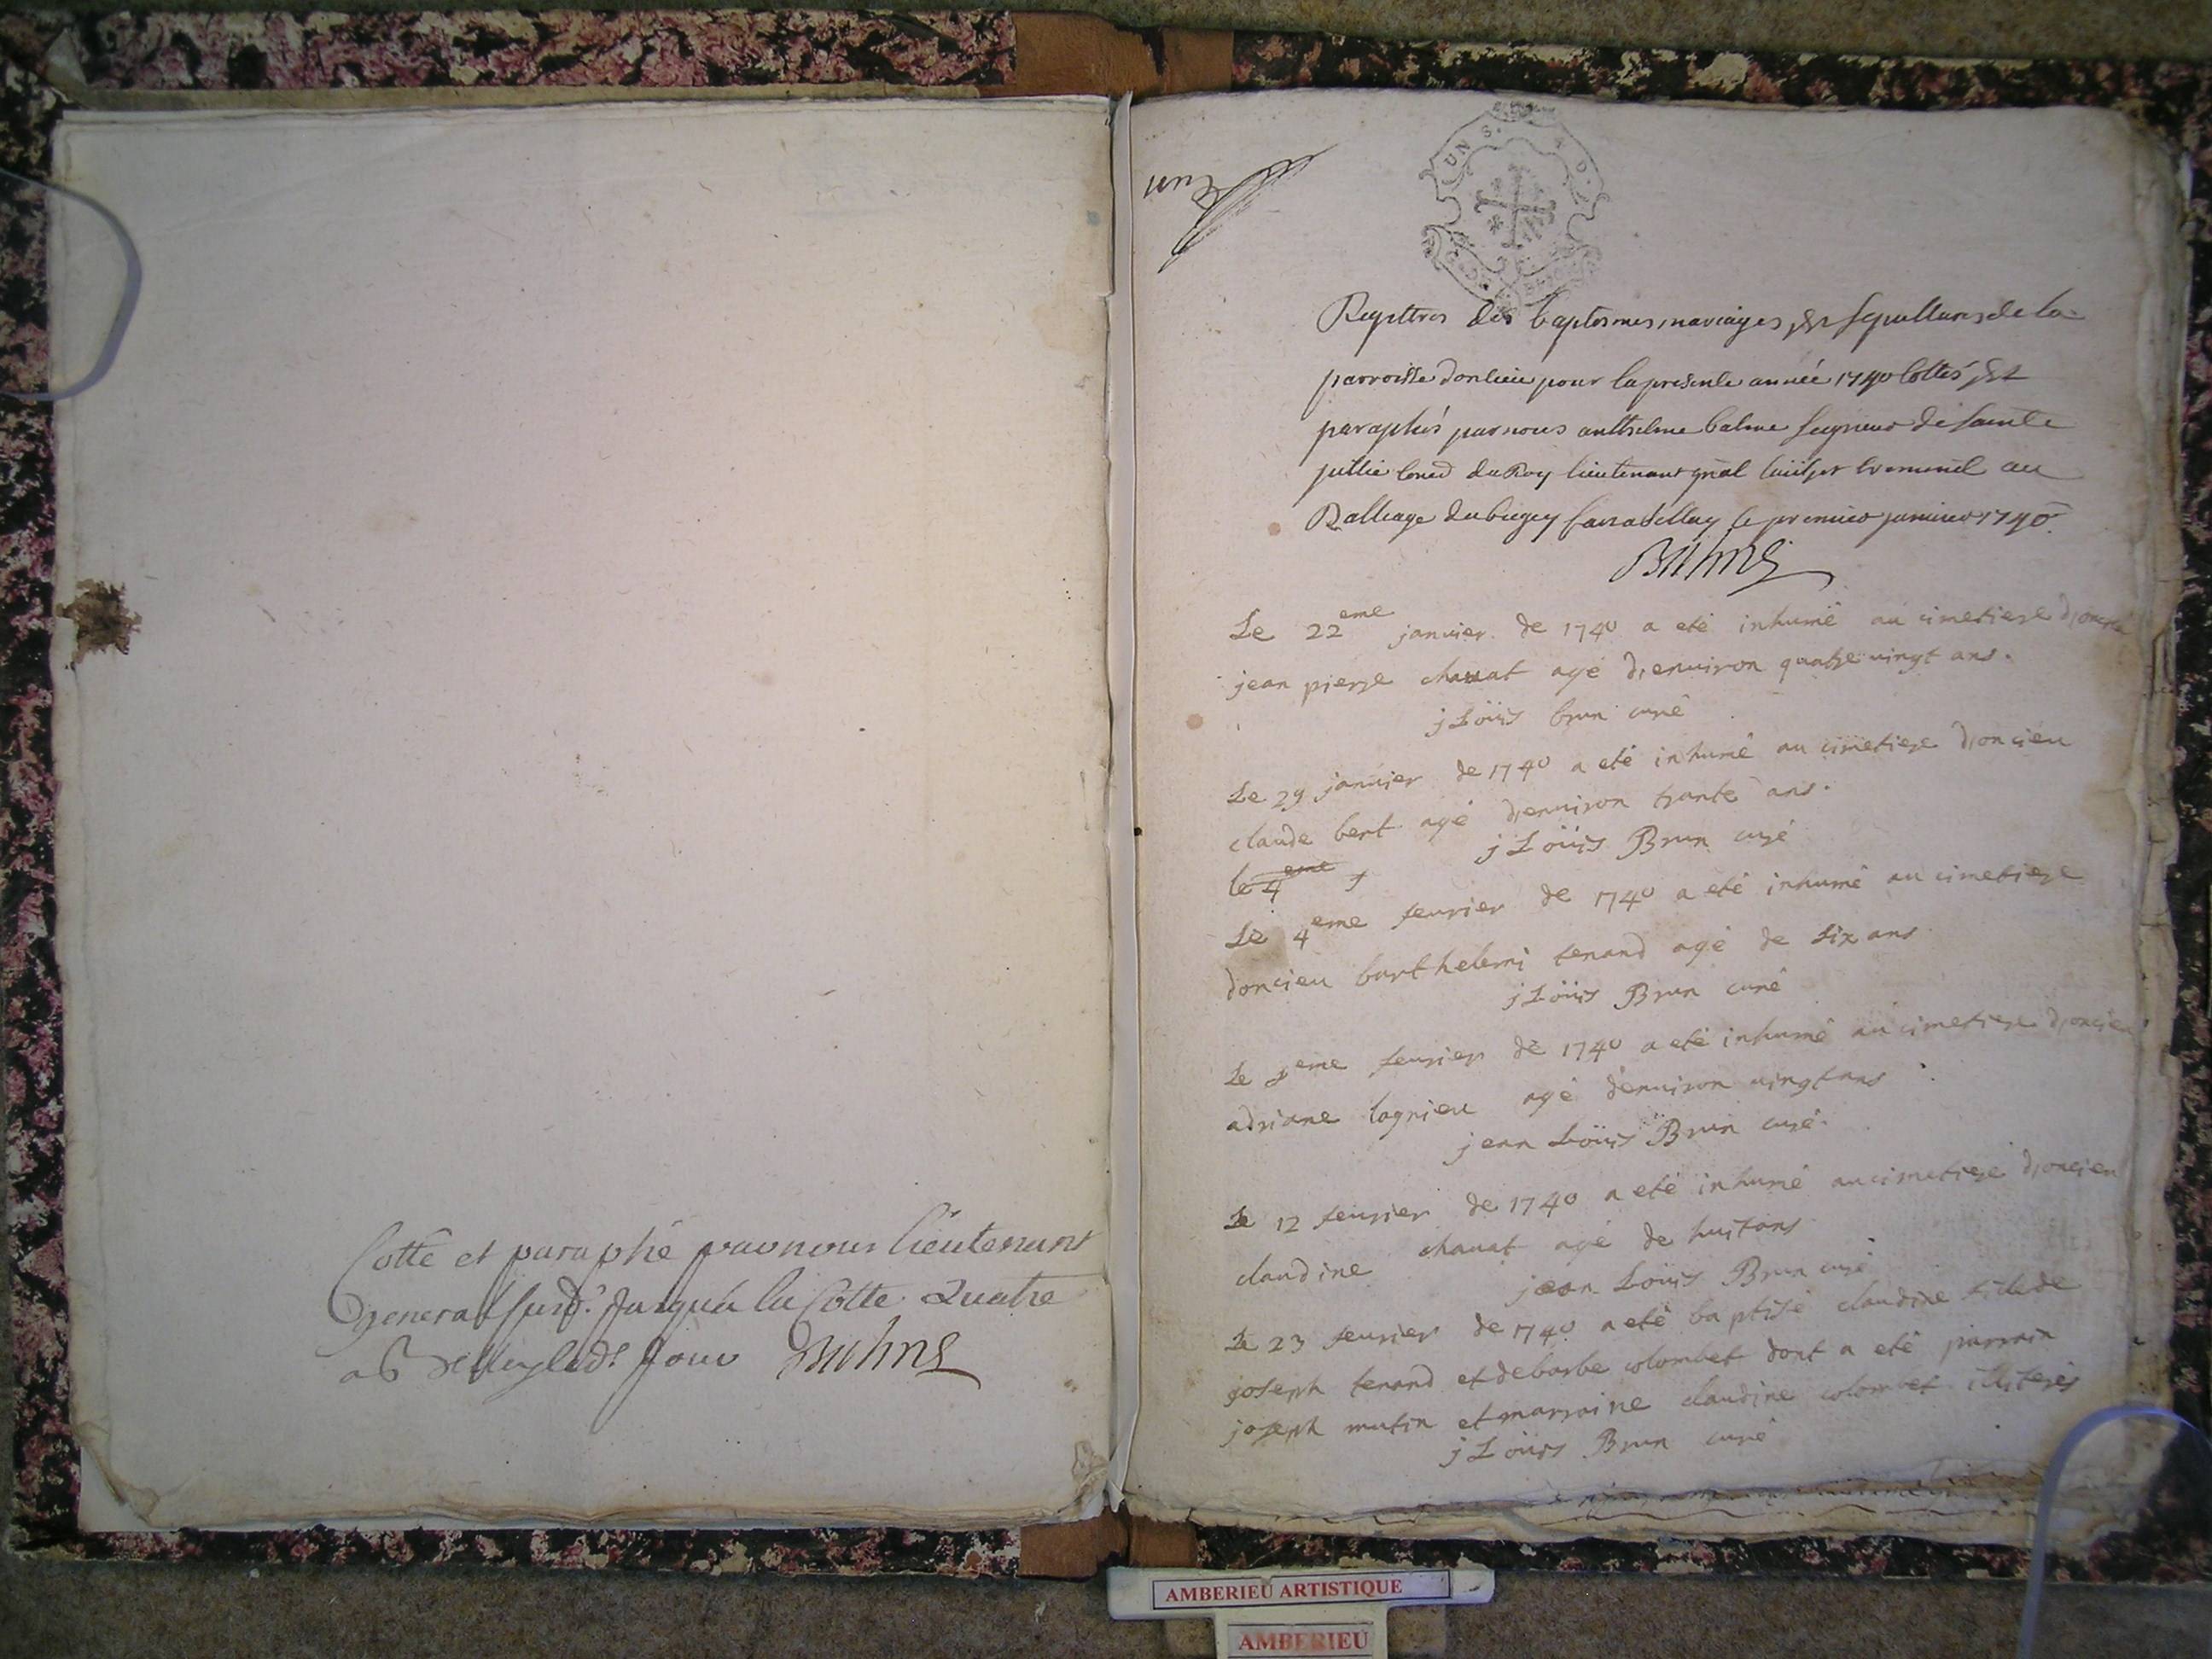 Cotté et paraphé par nous lieutenant
general susd.t Jusqu'a la Cotte Quatre
a Belley led.t Jour Balme
un
UN S. D.
Regittres des baptesmes, mariages, & sepultures de la
parroisse doncieu pour la presente année 1740 cottés &
paraphés par nous anthelme balme seigneur de sainte
jullie du Roy lieutenant gñal au
Balliage du bugey le premier janvier 1740
Balme
Le 22eme janvier de 1740 a eté inhumé au cimetiere d'oncieu
jean pierre chavat agé d'environ quatre vingt ans.
j Loüis brun curé
Le 29 janvier de 1740 a eté inhumé au cimetiere d'oncieu
claude bert agé d'environ trante ans.
j Loüis Brun curé
le 4eme f
Le 4eme fevrier de 1740 a eté inhumé au cimetiere
doncieu barthelemi tenand agé de six ans
j Loüis Brun curé
Le eme fevrier de 1740 a eté inhumé au cimetiere d'oncieu
adriane lagnieu agé d'environ vingt ans
jean Loüis Brun curé.
Le 12 fevrier de 1740 a eté inhumé au cimetiere d'oncieu
claudine chavat agé de huit ans
jean Loüis Brun curé
Le 23 fevrier de 1740 a eté baptisé claudine fille de
joseph tenand et de barbe colombet dont a eté parrain
joseph mutin et marraine claudine colombet illiterés
j Loüis Brun curé
AMBERIEU ARTISTIQUE
AMBERIEU